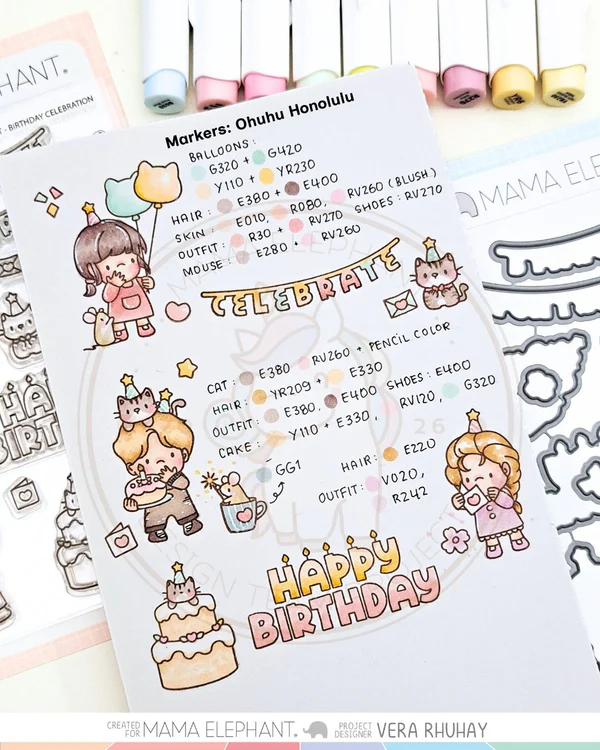 HANT.
- BIRTHDAY CELEBRATION
Markers: Ohuhu Honolulu
BALLOONS:
G320 + G420
Y110 + YR230
HAIR: E380 + E400
SKIN: E010, R080, RV260 (BLUSH.)
OUTFIT: R30 + RV270 SHOES: RV270
MOUSE: E280 + RV260
MAMA ELEPH
CELEBRATE
CAT: E380 RV260 + PENCIL COLOR
HAIR: YR209 + E330
OUTFIT: E380, E400 SHOES: E400
CAKE: Y110 + E330, RV120, G320
GG1
HAIR: E220
OUTFIT: V020,
R242
HA
BIRT
26
HAPPY
BIRTHDAY
CREATED FOR MAMA ELEPHANT. PROJECT DESIGNER VERA RHUHAY